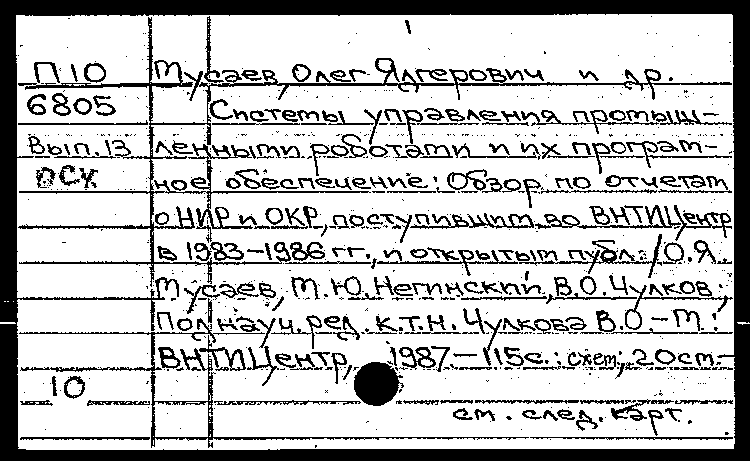 1
П 10 Мусаев, Олег Ядгерович и др.
6805 Системы управления промыш-
Вып. 13 ленными роботами и их програм-
ное обеспечение: Обзор по отчетам
о НИР и ОКР, поступившим во ВНТИЦентр
в 1983-1986 гг., и открытым публ. / О.Я.
Мусаев, М.Ю. Негинский, В.О. Чулков;
Под науч. ред. к.т.н. Чулкова В.О.-М.:
ВНТИЦентр, 1987.-115с.: схем; 20см.-
10
см. след. карт.